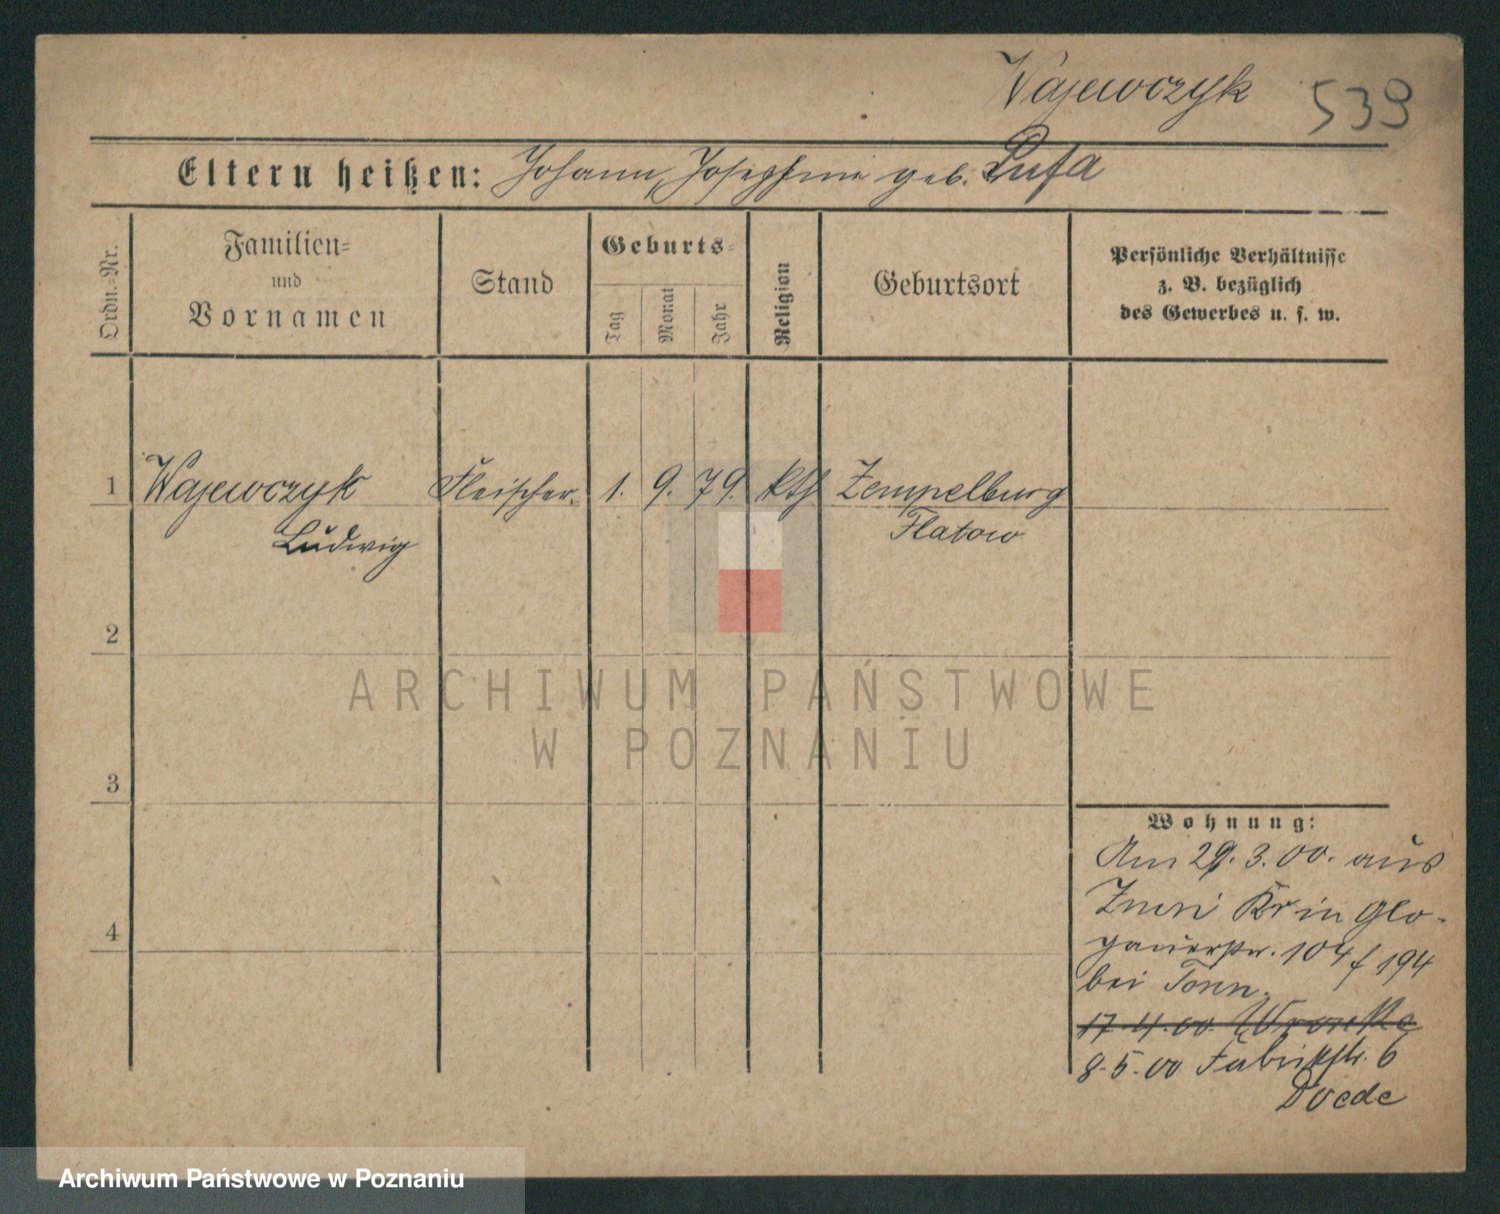 Wajewczyk 539
Eltern heißen: Johann, Josephine geb. Lufa
Ordn.-Nr.
Familien-
und
Vornamen
Stand
Geburts-
Tag
Monat
Jahr
Religion
Geburtsort
Persönliche Verhältnisse
z. B. bezüglich
des Gewerbes u. s. w.
1 Wajewczyk Fleischer 1. 9. 79. kth Zempelburg
Ludwig Flatow
2
ARCHIWUM PAŃSTWOWE
W POZNANIU
3
Wohnung:
Am 29. 3. 00. aus
Kr in Glo-
4
gauerstr. 104 f 194
bei Tonn.
17.4.00 Wronke
8.5.00 Fabrikstr. 6
Doede
Archiwum Państwowe w Poznaniu